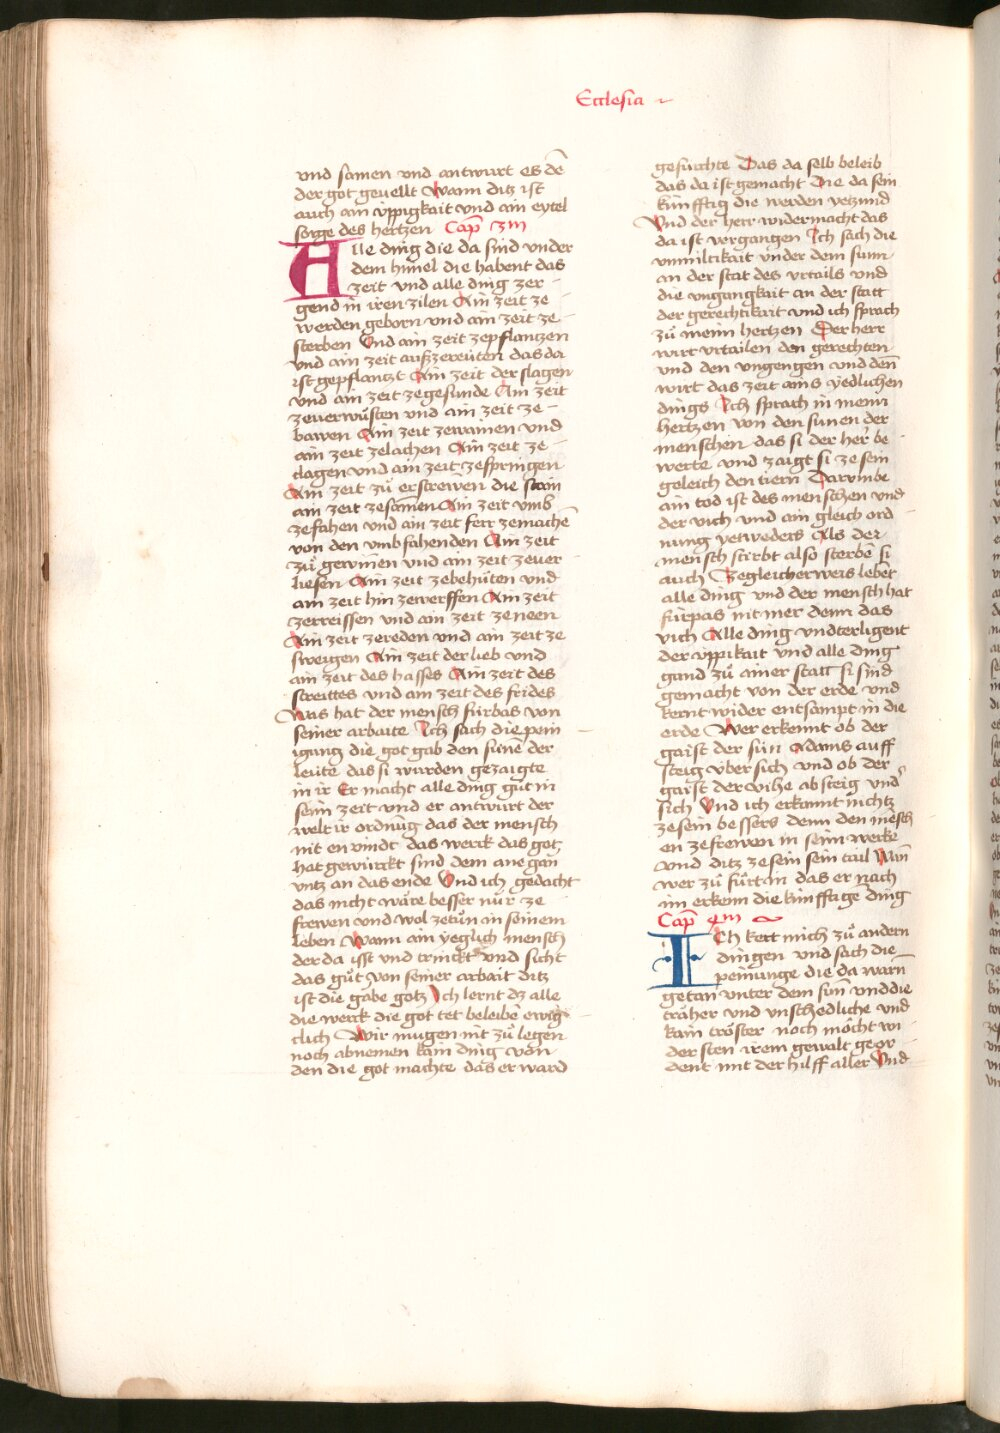 Ecclesia
und samen und antwurt es dē
der got geuellt Wann ditz ist
auch ain üppigkait und ain eytel
sorge des hertzen Cap̄ 3m
Alle ding die da sind under
dem himel die habent das
zeit und alle ding zer-
gend in iren zilen Ain zeit ze
werden geborn und ain zeit ze-
sterben Und ain zeit zepflantzen
und ain zeit aufzereüten das da
ist gepflantzt Ain zeit der slagen
und ain zeit zegesunde Ain zeit
zeuerwüsten und ain zeit ze-
bawen Ain zeit zewainen und
ain zeit zelachen Ain zeit ze-
clagen und ain zeit zespringen
Ain zeit zů erstrewen die stain
ain zeit zesamen Ain zeit umb
zefahen und ain zeit ferr zemachē
von den umbfahenden Ain zeit
zů gewinen und ain zeit zeuer
liesen Ain zeit zebehüten und
ain zeit hin zewerffen Ain zeit
zerreissen und ain zeit zeneen
Ain zeit zereden und ain zeit ze
sweigen Ain zeit der lieb und
ain zeit des hasses Ain zeit des
streittes und ain zeit des frides
Was hat der mensch fürbas von
seiner arbaite Ich sach die pein
igung die got gab den sünē der
leüte das si wurden gezaigte
in ir Er macht alle ding gůt in
seim zeit und er antwurt der
welt ir ordnūg das der mensch
nit enuindt das werck das got
hat gewürckt sind dem anegan
untz an das ende Und ich gedacht
das nicht wäre besser nür ze
frewen und wol zetůn in seinem
leben Wann ain yeglich mensch
der da isst und trinckt und sicht
das gůt von seiner arbait ditz
ist die gabe gotz Ich lernt dz alle
die werck die got tet beleibē ewig-
clich Wir mugen nit zů legen
noch abnemen kain ding von
den die got machte das er ward
gefürchte Das da selb beleib
das da ist gemacht Die da sein
künfftig die werden yetzund
Und der herr widermacht das
da ist vergangen Ich sach die
unmiltikait under dem sunn
an der stat des urtails und
die ungangkait an der statt
der gerechtikait und ich sprach
zů meim hertzen Der herr
wirt urtailen den gerechten
und den ungengen und denn
wirt das zeit ains yedlichen
dings Ich sprach in meim
hertzen von den sunen der
menschen das si der her be-
werte und zaigt si ze sein
geleich den tiern Darumbe
ain tod ist des menschen und
der vich und ain gleich ord
nung yetweders Als der
mensch stirbt also sterbē si
auch Zegleicherweis lebēt
alle ding und der mensch hat
fürpas nit mer denn das
vich Alle ding underligent
der üppikait und alle ding
gand zů ainer statt si sind
gemacht von der erde und
kernt wider entsampt in die
erde Wer erkennt ob der
gaist der sün Adams auff
steig über sich und ob der
gaist der vihe absteig und
sich Und ich erkannt nichtz
zesein bessers denn den mēsch
en zefrewen in seim wercke
und ditz zesein sein tail Wan̄
wer zů fürt in das er nach
im erkenn die künfftigē ding
Cap̄ 4m
ICh kert mich zů andern
dingen und sach die
peinunge die da warn
getan unter dem sun̄ und die
träher und unschedliche und
kain tröster noch möcht wi-
der sten irem gewalt geor-
dent mit der hilff aller Und